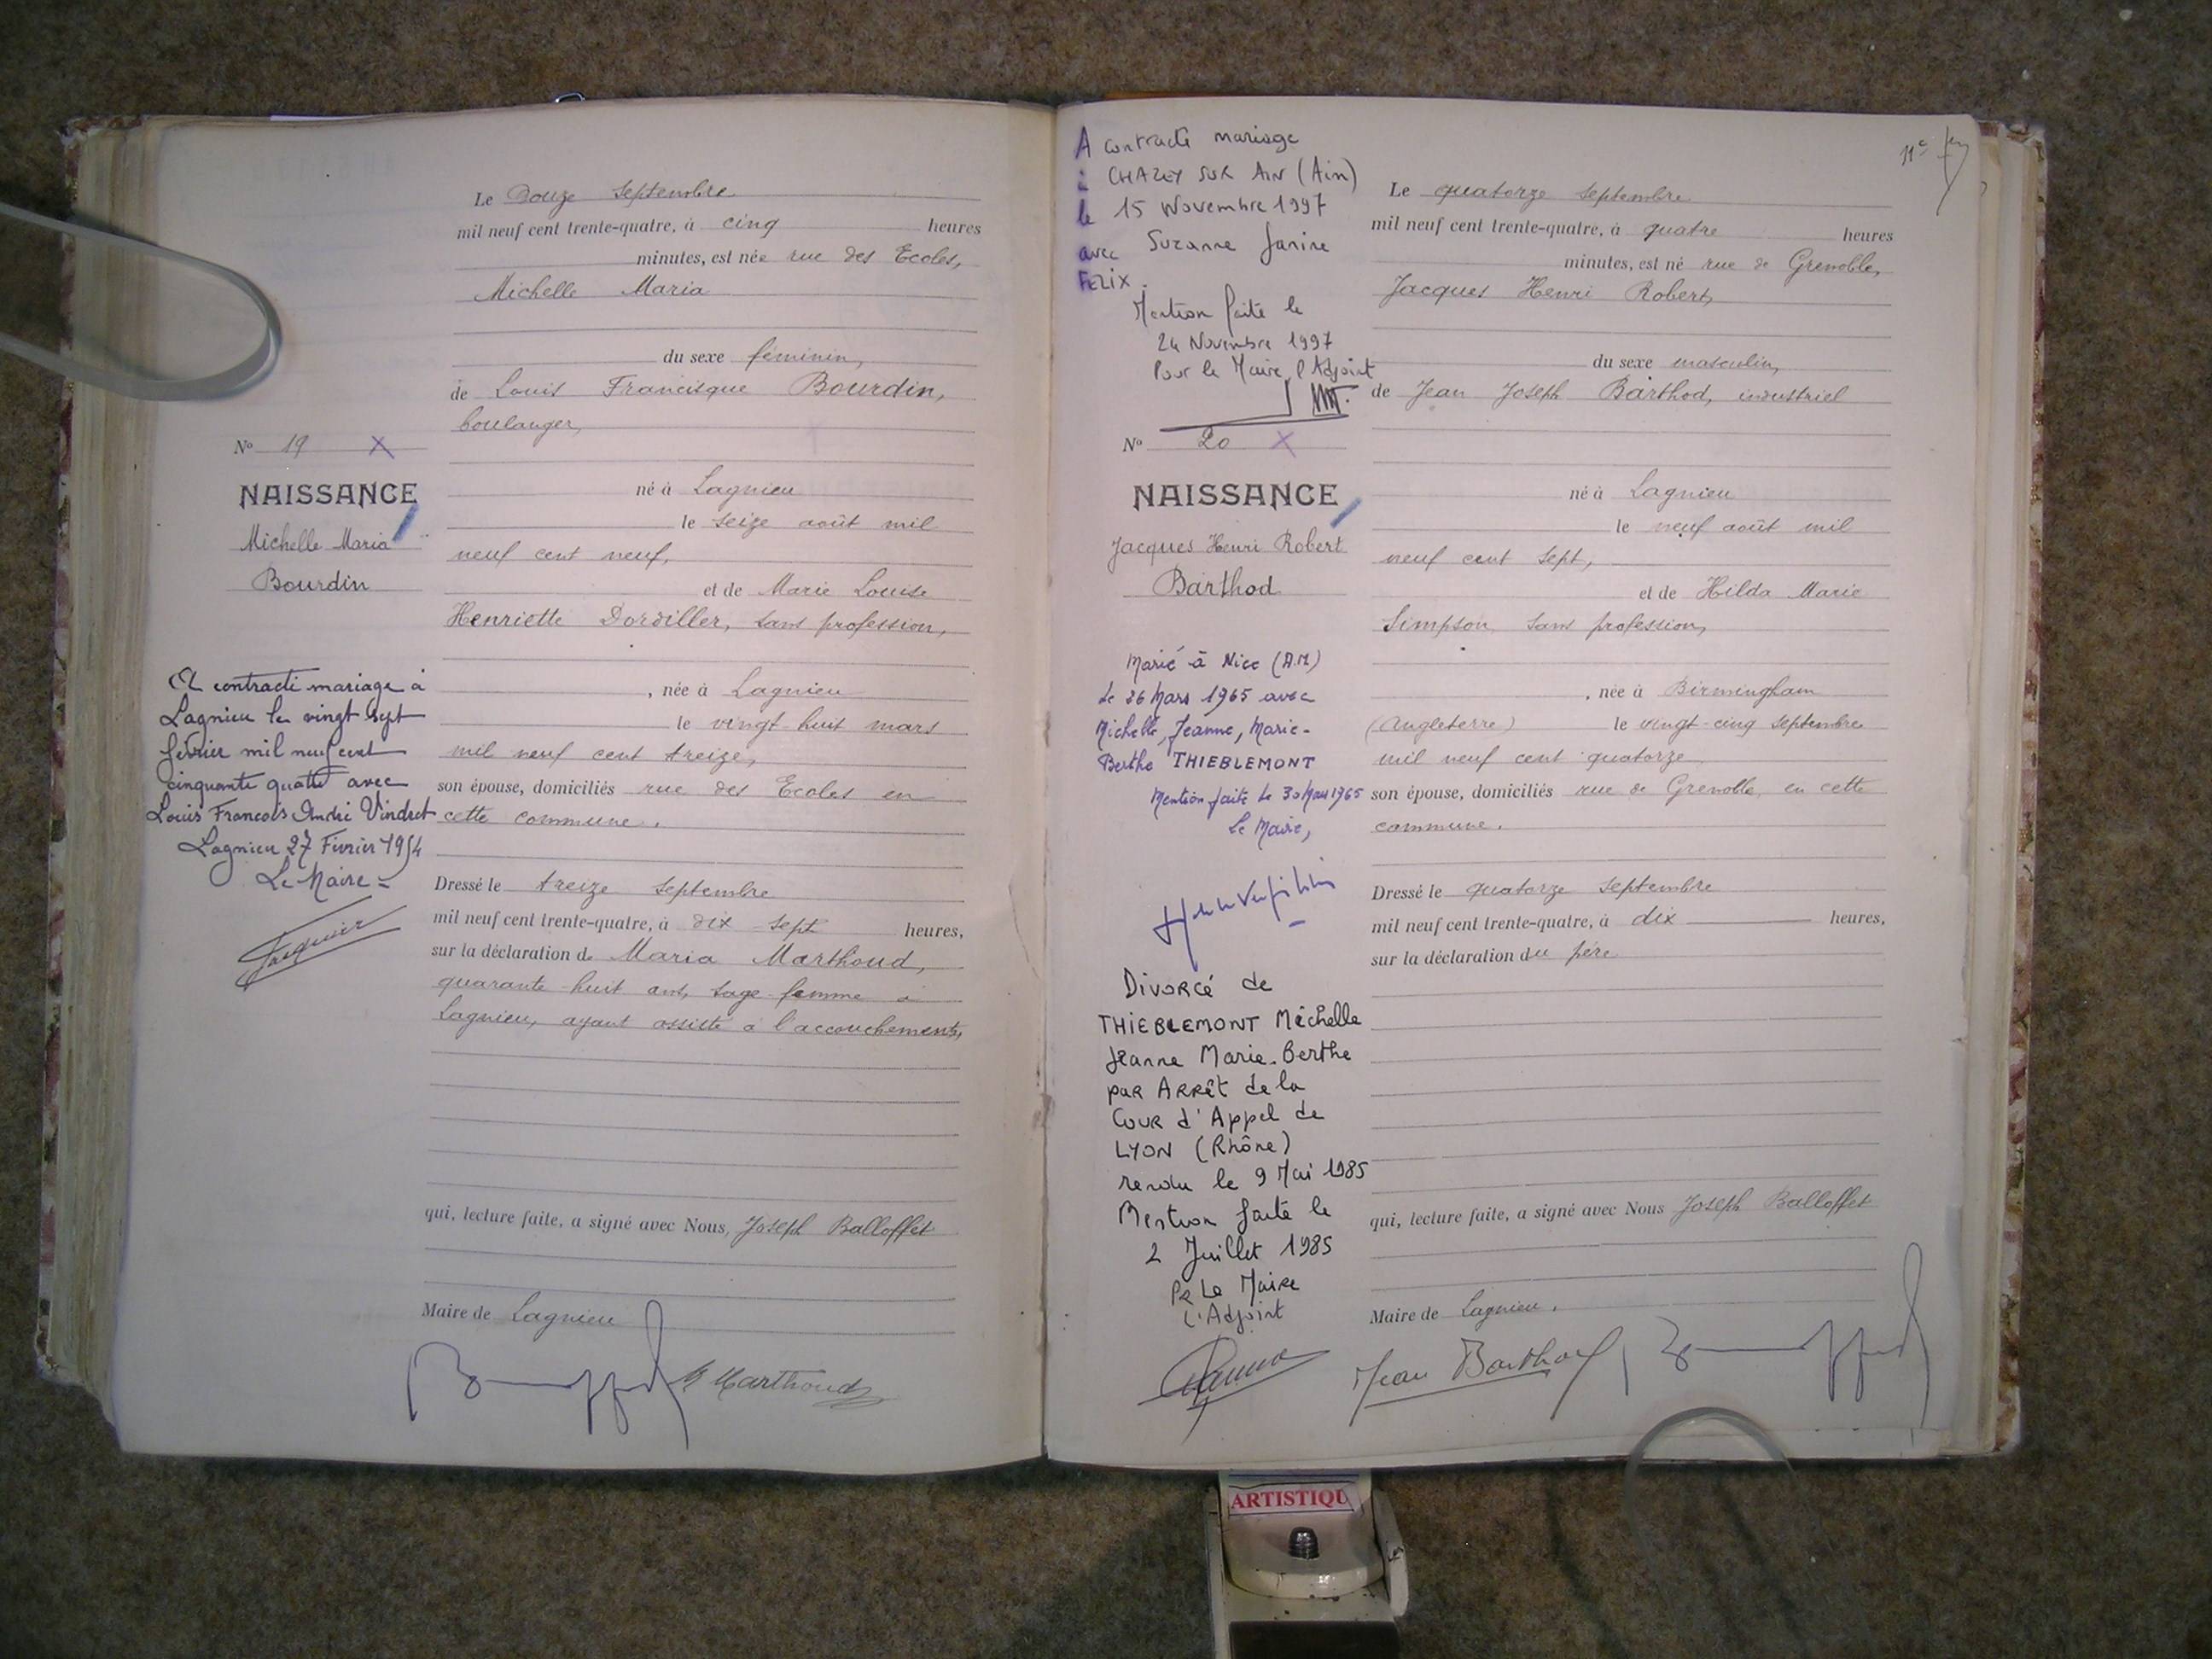 Le Douze Septembre
mil neuf cent trente-quatre, à cinq heures
minutes, est née rue des Ecoles,
Michelle Maria
du sexe féminin,
de Louis Francisque Bourdin,
boulanger,
né à Lagnieu
le seize août mil
neuf cent neuf,
et de Marie Louise
Henriette Dordiller, sans profession,
, née à Lagnieu
le vingt-huit mars
mil neuf cent treize,
son épouse, domiciliés rue des Ecoles en
cette commune.
Dressé le treize Septembre
mil neuf cent trente-quatre, à dix-sept heures,
sur la déclaration de Maria Marthoud,
quarante-huit ans, sage-femme à
Lagnieu, ayant assisté à l'accouchement,
qui, lecture faite, a signé avec Nous, Joseph Balloffet
Maire de Lagnieu
M Marthoud
No 19 X
NAISSANCE
Michelle Maria
Bourdin
A contracté mariage à
Lagnieu le vingt sept
février mil neuf cent
cinquante quatre avec
Louis François André Vindret
Lagnieu 27 Février 1954
Le Maire =
11e
Le quatorze Septembre
mil neuf cent trente-quatre, à quatre heures
minutes, est né rue de Grenoble,
Jacques Henri Robert,
du sexe masculin,
de Jean Joseph Barthod, industriel
né à Lagnieu
le neuf août mil
neuf cent sept,
et de Hilda Marie
Simpson sans profession,
, née à Birmingham
(Angleterre) le vingt-cinq Septembre
mil neuf cent quatorze
son épouse, domiciliés rue de Grenoble, en cette
commune.
Dressé le quatorze Septembre
mil neuf cent trente-quatre, à dix heures,
sur la déclaration du père
qui, lecture faite, a signé avec Nous Joseph Balloffet
Maire de Lagnieu.
Jean Barthod
A contracté mariage
à CHAZEY SUR AIN (Ain)
le 15 Novembre 1997
avec Suzanne Janine
FELIX.
Mention faite le
24 Novembre 1997
Pour le Maire, l'Adjoint
No 20 X
NAISSANCE
Jacques Henri Robert
Barthod
Marié à Nice (A.M)
le 26 Mars 1965 avec
Michelle, Jeanne, Marie-
Berthe THIEBLEMONT
Mention faite le 30 Mars 1965
Le Maire,
Divorcé de
THIEBLEMONT Michelle
Jeanne Marie-Berthe
par ARRêt de la
Cour d'Appel de
LYON (Rhône)
rendu le 9 Mai 1985
Mention faite le
2 Juillet 1985
Pr Le Maire
L'Adjoint
ARTISTIQU